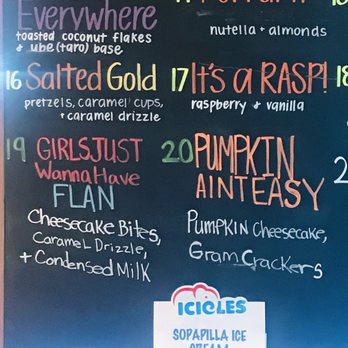 Everywhere
toasted coconut flakes
& ube(taro) base
nutella + almonds
16 Salted Gold
pretzels, caramel cups,
+ caramel drizzle
17 It's a RASP!
raspberry + vanilla
18
19 GIRLS JUST
Wanna Have
FLAN
Cheesecake Bites,
Caramel Drizzle,
+ Condensed Milk
20 PUMPKIN
AINT EASY
PUMPKIN Cheesecake,
Gram Crackers
2
ICICLES
SOPAPILLA ICE
CREAM